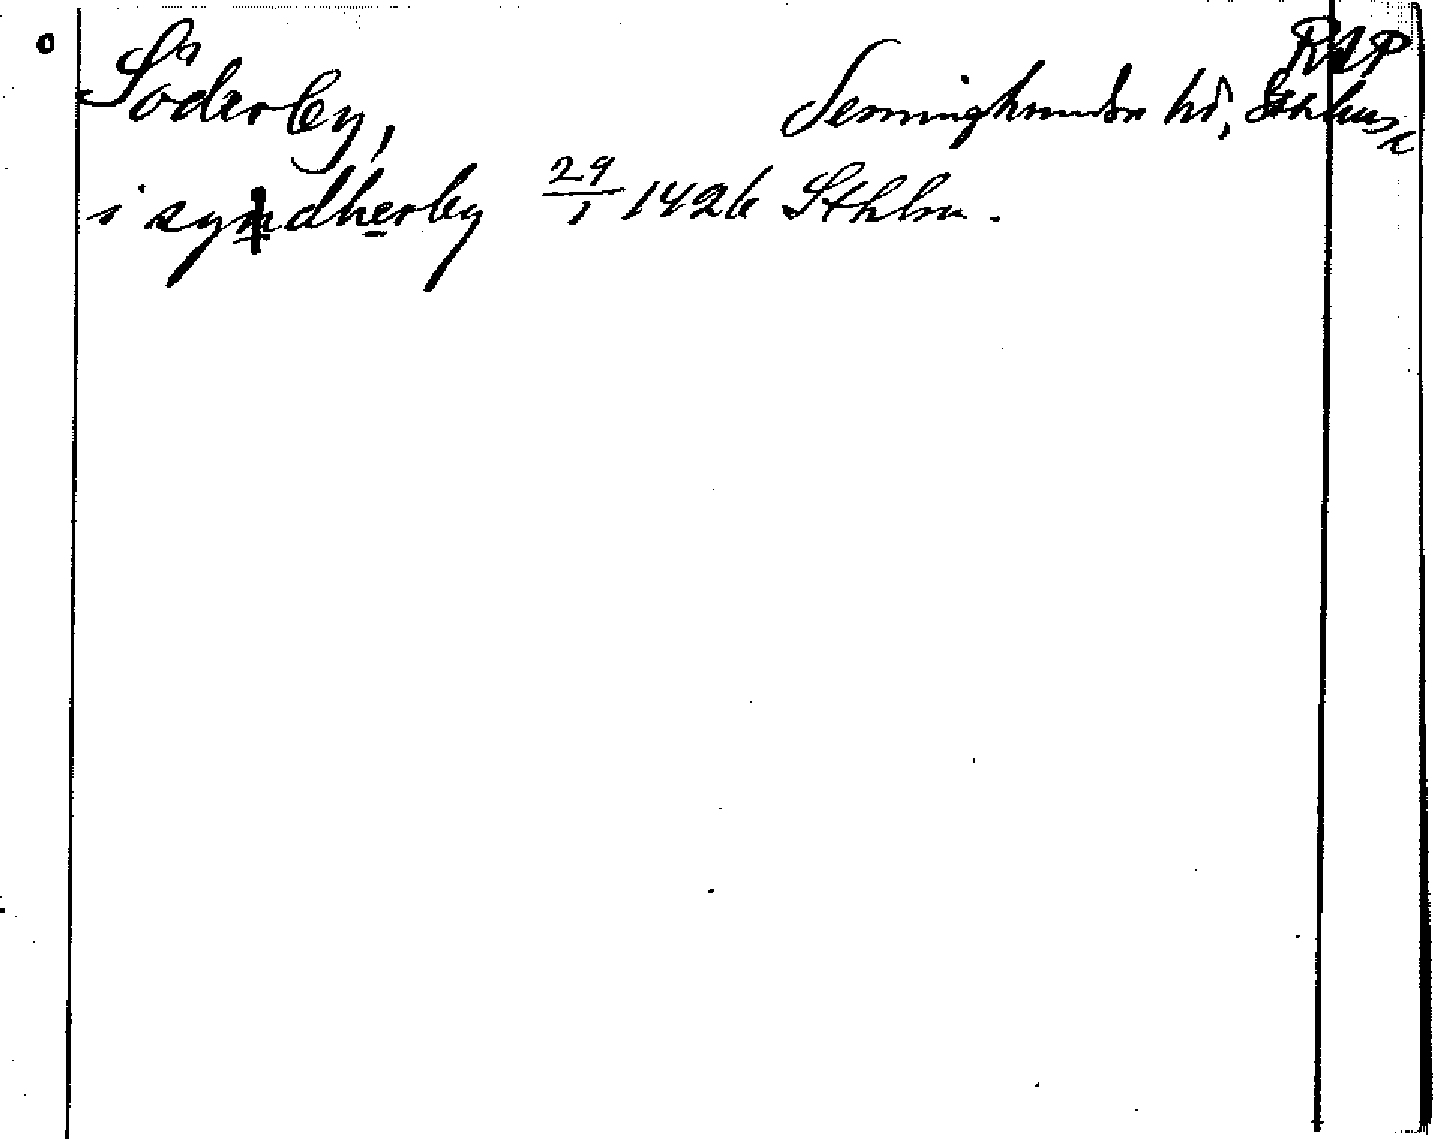 RAP
Söderby, Seminghundra hd, Sthlms l
i syndherby 29/1 1426 Sthlm.